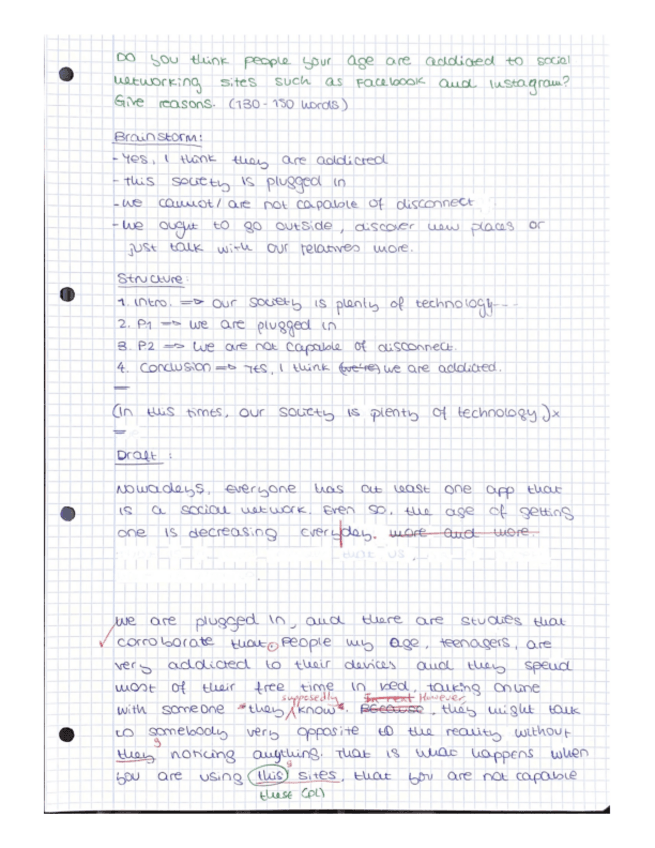 Do you think people your age are addicted to social
networking sites such as Facebook and Instagram?
Give reasons. (130-150 words)
Brainstorm:
- Yes, I think they are addicted
- this society is plugged in
- we cannot / are not capable of disconnect
- we ought to go outside, discover new places or
just talk with our relatives more.
Structure:
1. Intro. => our society is plenty of technology...
2. P1 => we are plugged in
3. P2 => We are not capable of disconnect.
4. Conclusion => Yes, I think (we're) we are addicted.
(In this times, our society is plenty of technology) x
Draft:
Nowadays, everyone has at least one app that
is a social network. Even so, the age of getting
one is decreasing everyday. more and more.
We are plugged in, and there are studies that
corroborate that. People my age, teenagers, are
very addicted to their devices and they spend
most of their free time in bed, talking online
supposedly In real However
with someone "they know". Because, they might talk
to somebody very opposite to the reality without
they noticing anything. That is what happens when
you are using this sites, that you are not capable
these (pl)